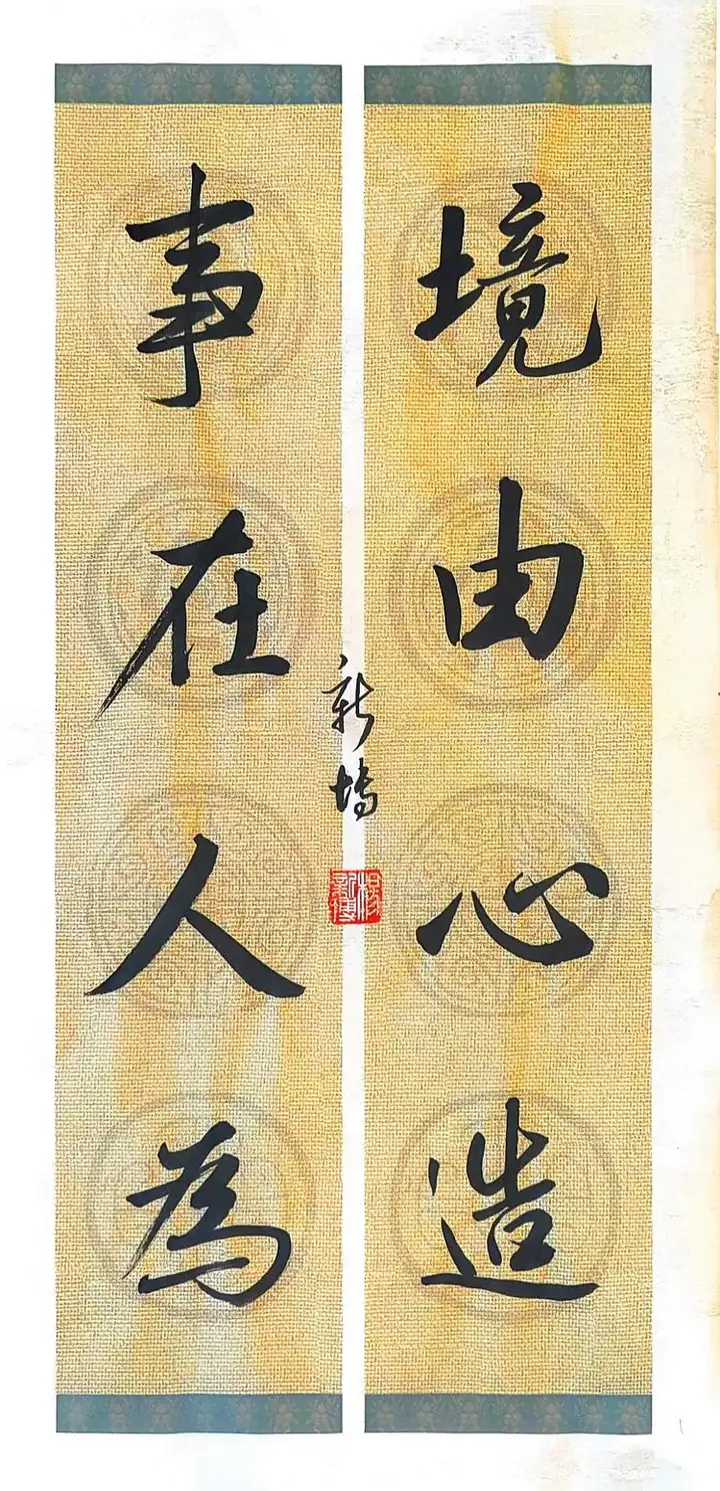 境由心造
事在人為
新博